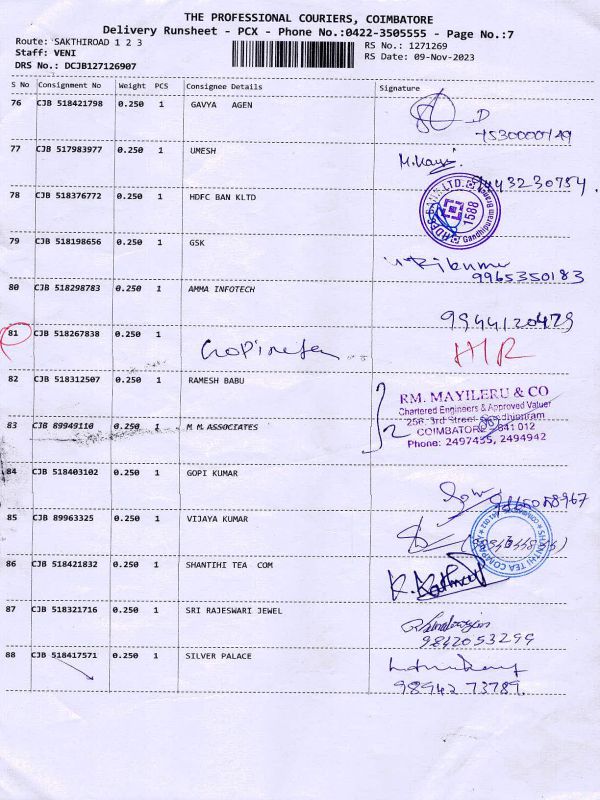 THE PROFESSIONAL COURIERS, COIMBATORE
Delivery Runsheet - PCX - Phone No.:0422-3505555 - Page No.:7
Route: SAKTHIROAD 1 2 3
Staff: VENI
DRS No.: DCJB127126907
RS No.: 1271269
RS Date: 09-Nov-2023
S No Consignment No Weight PCS Consignee Details Signature
76 CJB 518421798 0.250 1 GAVYA AGEN
77 CJB 517983977 0.250 1 UMESH
9443230754.
78 CJB 518376772 0.250 1 HDFC BAN KLTD
HDFC BANK LTD. 1588 Gandhipuram Branch
79 CJB 518198656 0.250 1 GSK
9965350183
80 CJB 518298783 0.250 1 AMMA INFOTECH
9944120479
81 CJB 518267838 0.250 1
HR
82 CJB 518312507 0.250 1 RAMESH BABU
RM. MAYILERU & CO
Chartered Engineers & Approved Valuer
256, 3rd Street, Gandhipuram
COIMBATORE - 641 012
Phone: 2497435, 2494942
83 CJB 89949110 0.250 1 M M ASSOCIATES
84 CJB 518403102 0.250 1 GOPI KUMAR
85 CJB 89963325 0.250 1 VIJAYA KUMAR
SHANTHI TEA COMPANY
86 CJB 518421832 0.250 1 SHANTIHI TEA COM
87 CJB 518321716 0.250 1 SRI RAJESWARI JEWEL
9842053299
88 CJB 518417571 0.250 1 SILVER PALACE
98942 73789.